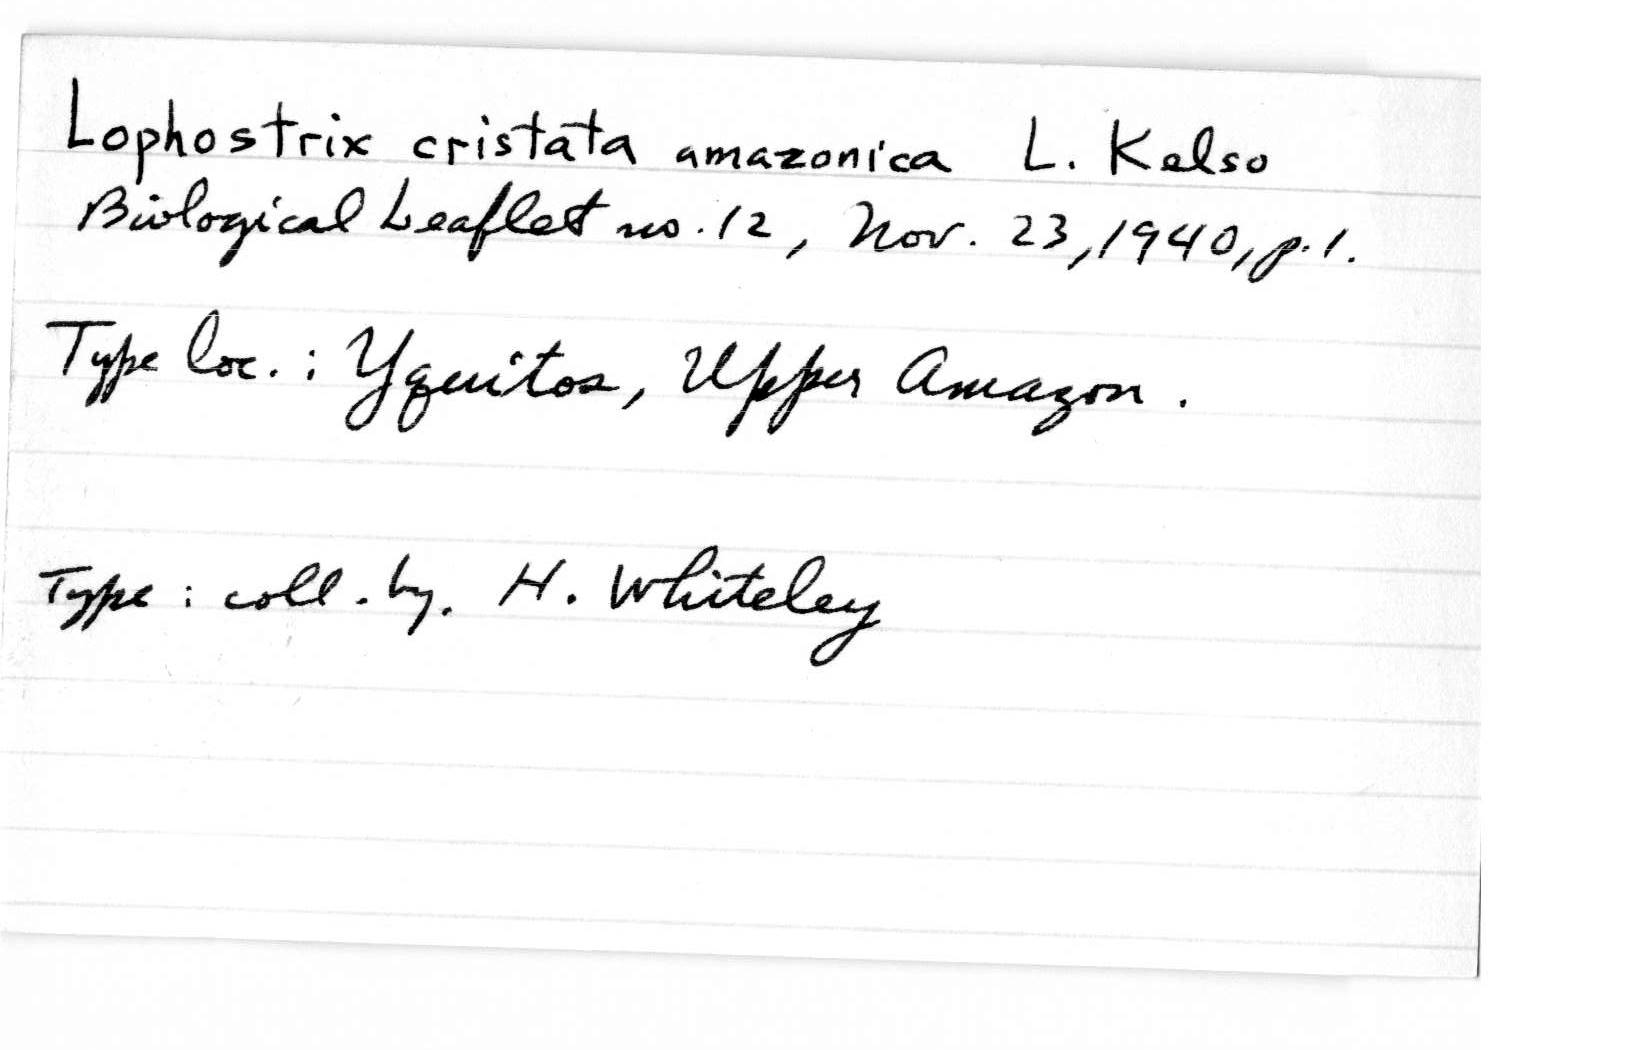 Lophostrix cristata amazonica L. Kelso
Biological Leaflet no. 12, Nov. 23, 1940, p. 1.
Type loc. : Yquitos, Upper Amazon.
Type : coll. by. H. Whiteley